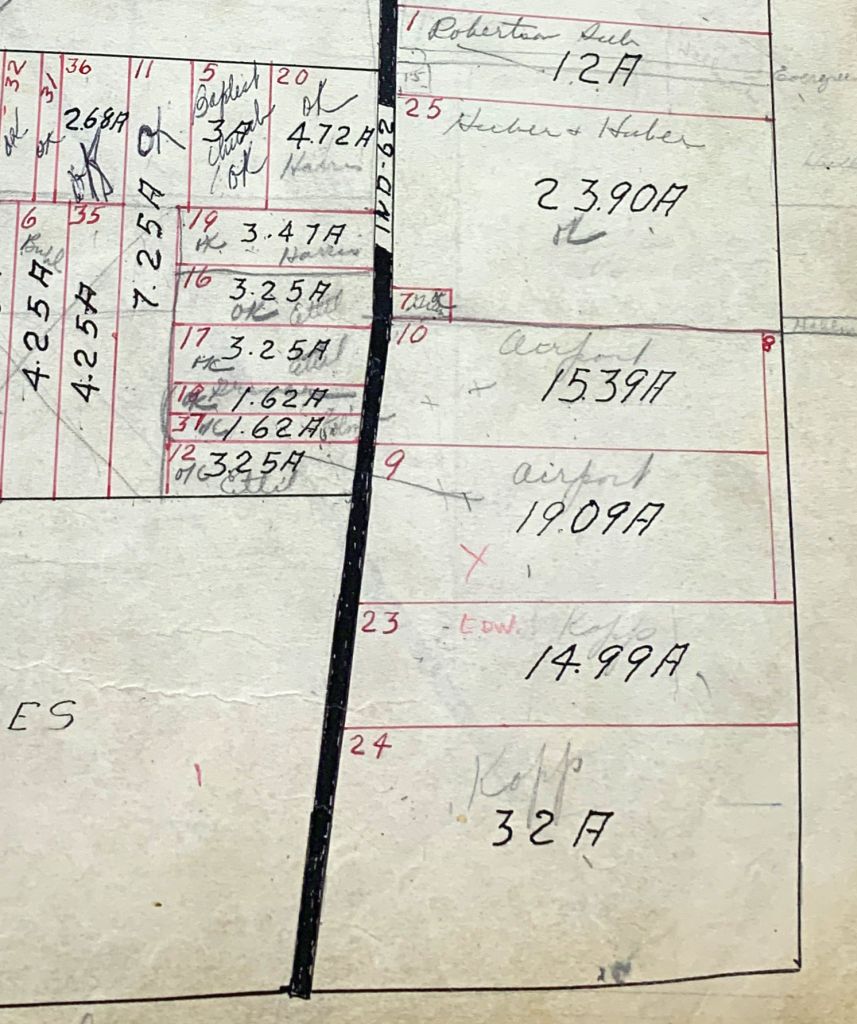 1 Robertson Sub
12A
15
25
Huber & Huber
23.90A
OK
7
IND-62
10
Airport
15.39A
8
9
Airport
19.09A
X
23 EDW. Kopp
14.99A
24
Kopp
32A
32
OK
31
OK
36
2.68A
OK
11
7.25A OK
5
Baptist
3A
Church
OK
20
OK
4.72A
Harris
6
Buhl
4.25A
35
4.25A
19
OK 3.47A
Harris
16
3.25A
OK Ettel
17
3.25A
OK Ettel
18
OK 1.62A
37 OK 1.62A
12
OK 3.25A
Ettel
ES
1